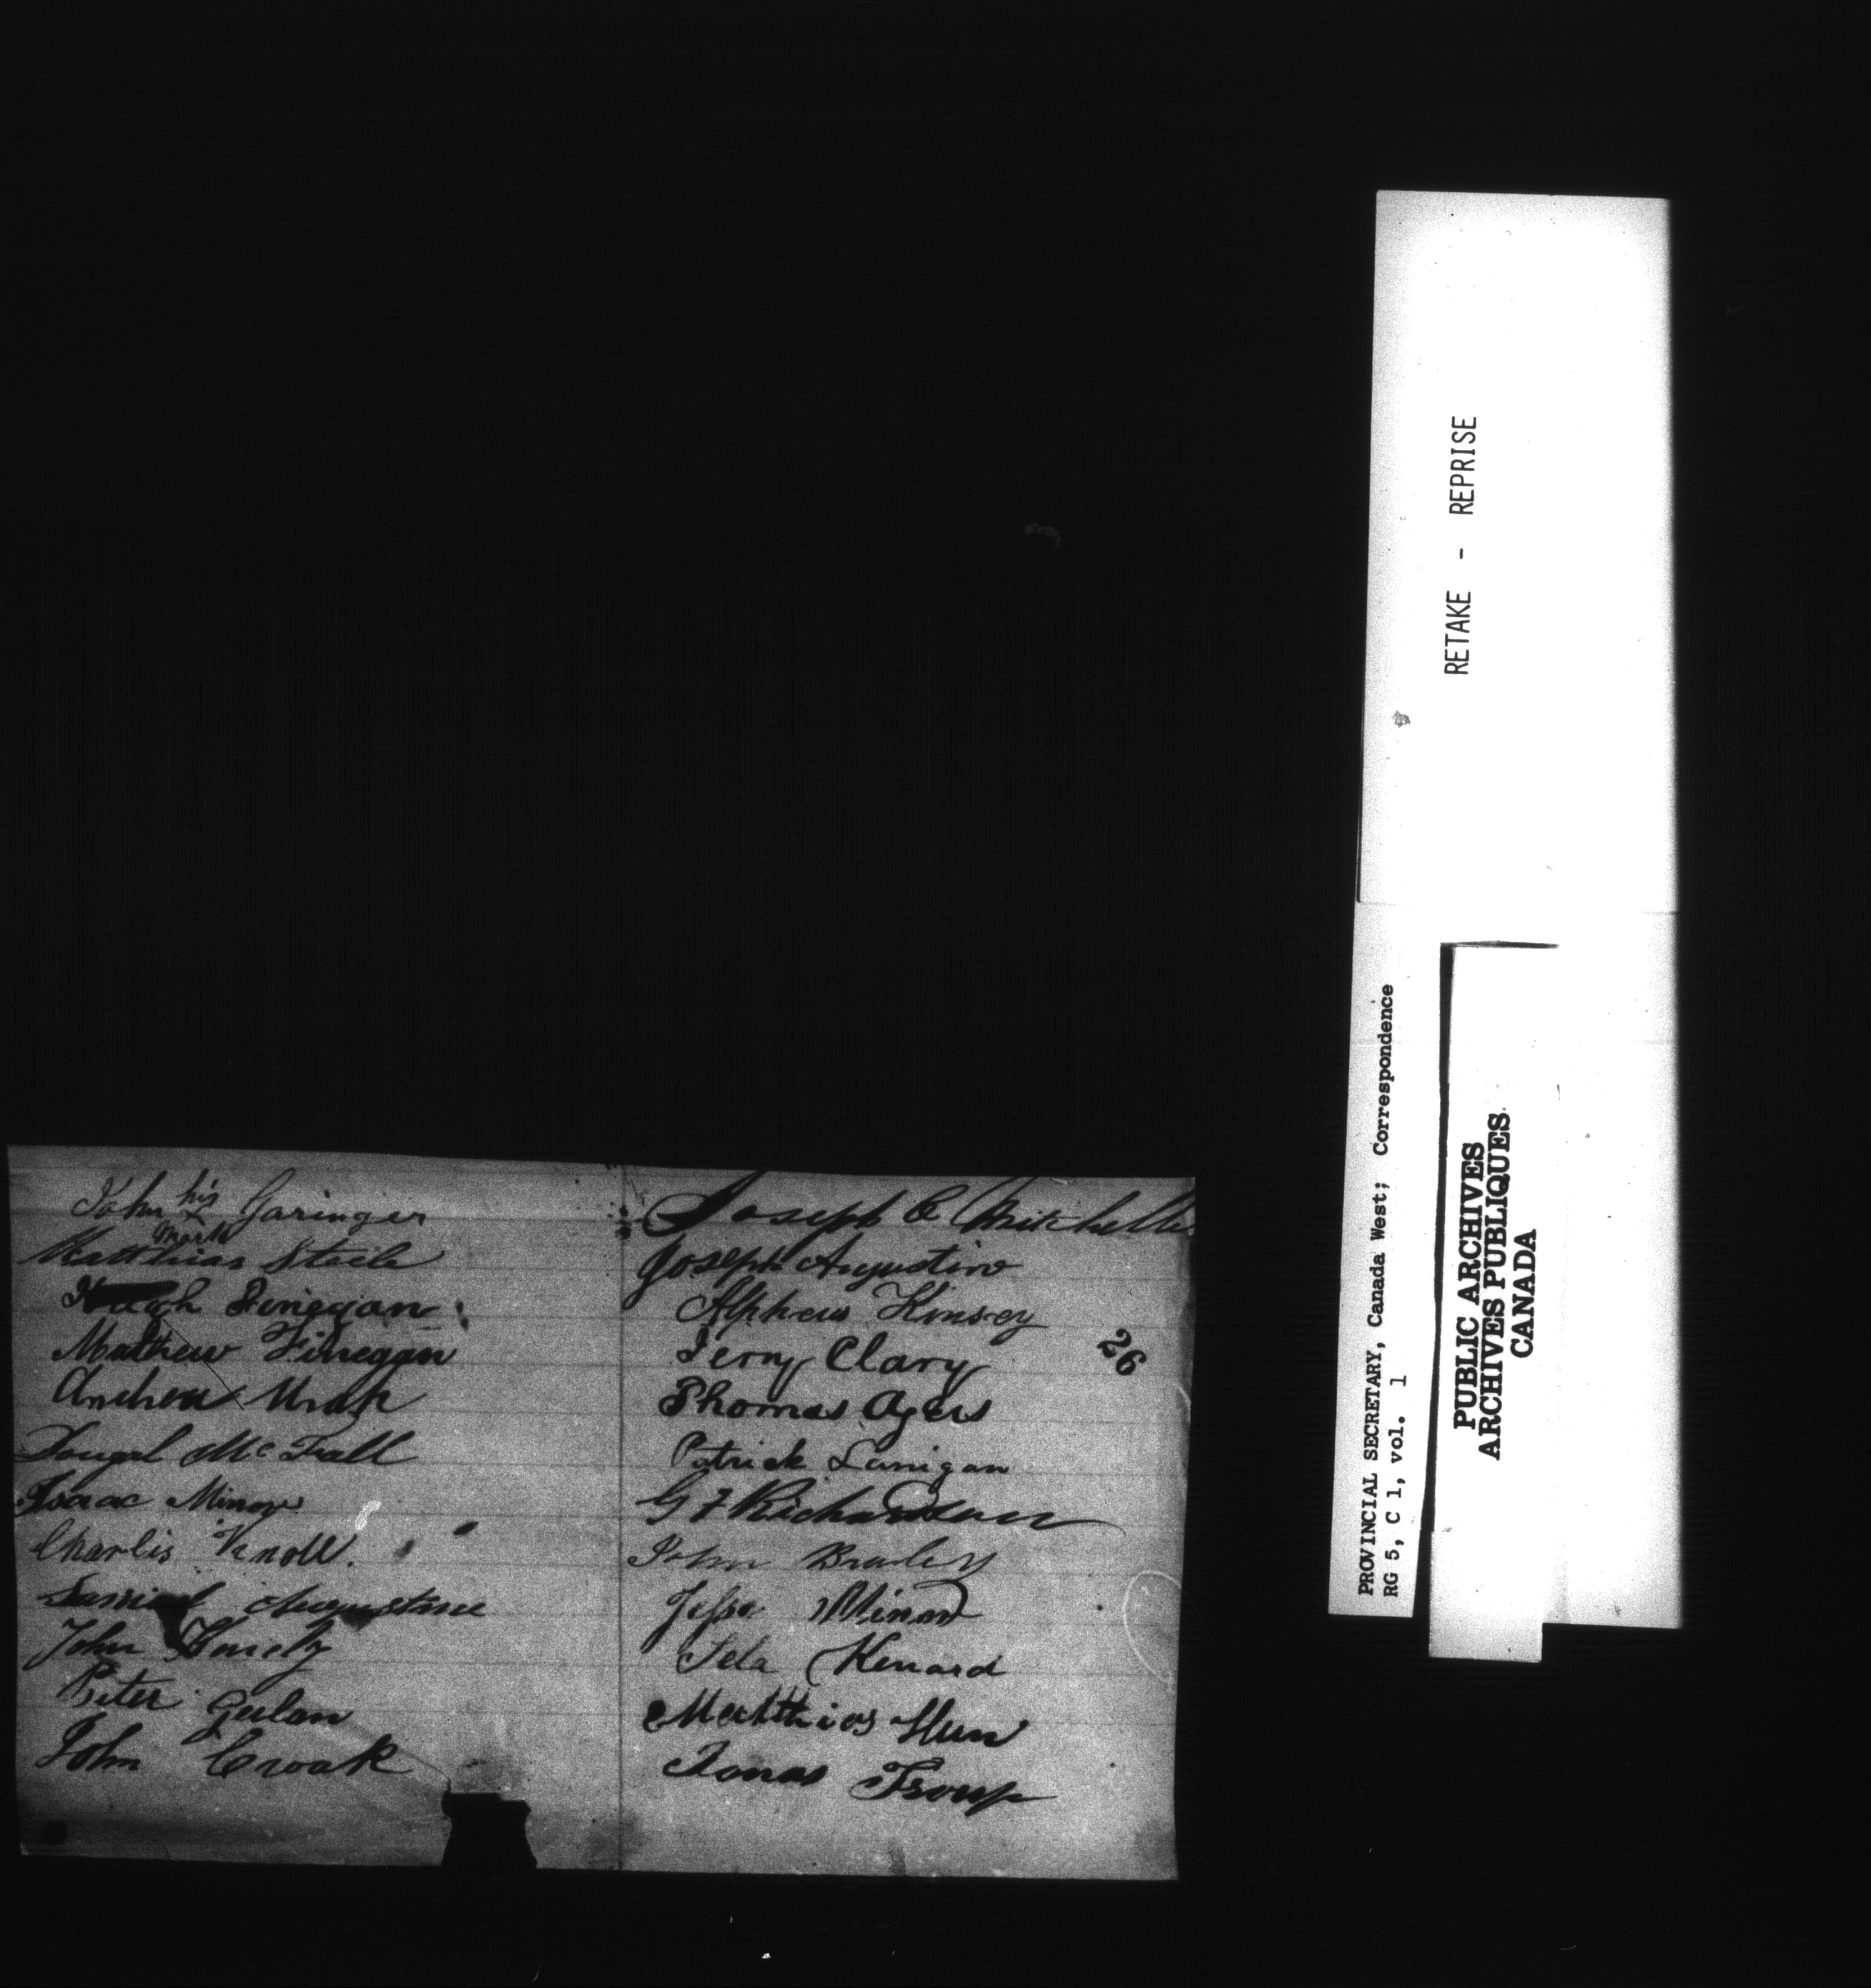 John his Garinger
x
mark
Matthias Steele
Hugh Finegan
Mathew Finegan
Andrew
Dougal McFall
Isaac Minor
Charlis Knoll.
Samuel Augustine
John
Peter Gulan
John Croak
Joseph C Mitchell
Joseph Augustine
Alpheus Kinsey
Jerry Clary
Thomas Agers
Patrick Lanigan
G F Richardson
John
Jesse Minor
Sela Kenard
Matthias Hun
Jonas Troup
26
RETAKE - REPRISE
PROVINCIAL SECRETARY, Canada West; Correspondence
RG 5, C 1, vol. 1
PUBLIC ARCHIVES
ARCHIVES PUBLIQUES
CANADA